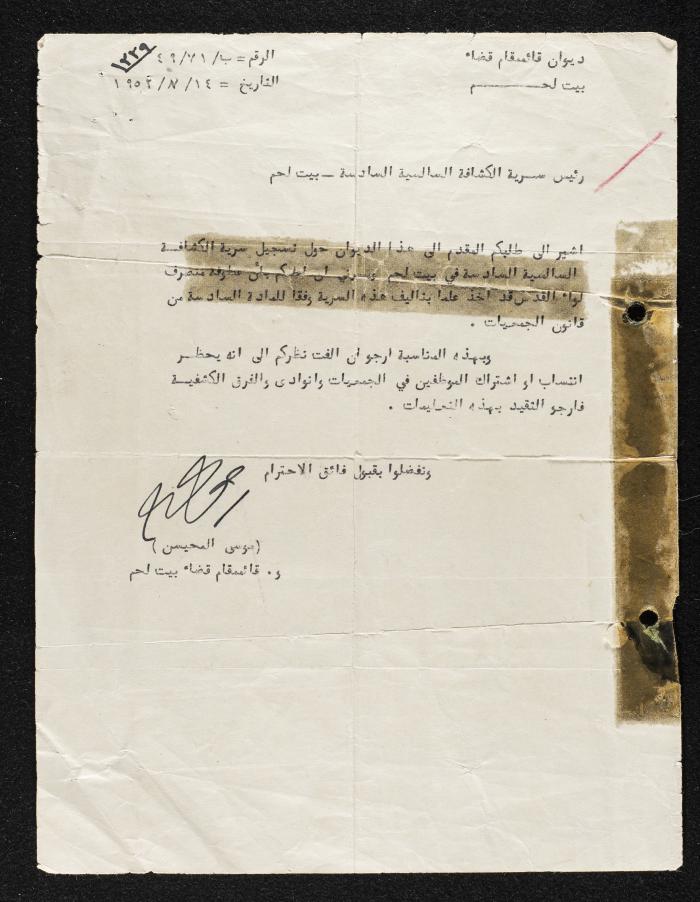 ديوان قائممقام قضاء
بيت لحـــــــــم
الرقم = ب/٤٩/٧١
١٢٣٩
التاريخ = ١٩٥٢/٨/١٤
رئيس سرية الكشافة السالسية السادسة — بيت لحم
اشير الى طلبكم المقدم الى هذا الديوان حول تسجيل سرية الكشافـة
السالسية السادسة في بيت لحم ويسرني ان اعلمكم بأن عطوفة متصرف
لواء القدس قد اخذ علما بتاليف هذه السرية وفقا للمادة السادسة من
قانون الجمعيات .
وبهذه المناسبة ارجو ان الفت نظركم الى انه يحظـر
انتساب او اشتراك الموظفين في الجمعيات وانوادى والفرق الكشفيـة
فارجو التقيد بهذه التعليمات .
وتفضلوا بقبول فائق الاحترام
(موسى المحيسن)
و. قائممقام قضاء بيت لحم